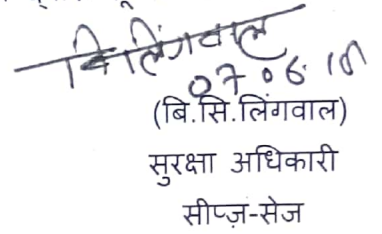 बि लिंगवाल
07.06.
(बि.सि.लिंगवाल)
सुरक्षा अधिकारी
सीप्ज़-सेज